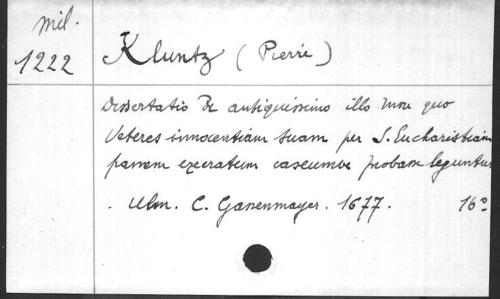 Mil.
1222
Kluntz (Pierre)
Dissertatio De antiquissimo illo more quo
Veteres innocentiam suam per S. Eucharistiam
panem execratum caseumve probasse leguntur
. Ulm. C. Gassenmayer. 1677. 16°